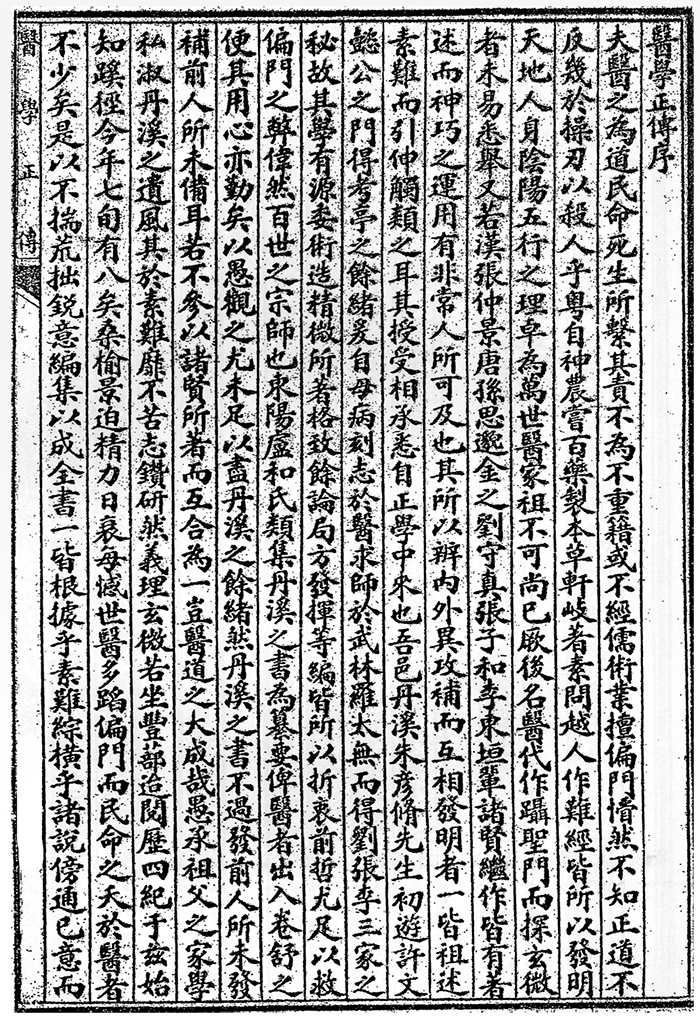 醫學正傳序
夫醫之為道民命死生所繫其責不為不重籍或不經儒術業擅偏門懵然不知正道不
反幾於操刃以殺人乎粵自神農嘗百藥製本草軒岐著素問越人作難經皆所以發明
天地人身陰陽五行之理卓為萬世醫家祖不可尚已厥後名醫代作躡聖門而探玄微
者未易悉舉又若漢張仲景唐孫思邈金之劉守真張子和李東垣輩諸賢繼作皆有著
述而神巧之運用有非常人所可及也其所以辨內外異攻補而互相發明者一皆祖述
素難而引伸觸類之耳其授受相承悉自正學中來也吾邑丹溪朱彥脩先生初遊許文
懿公之門得考亭之餘緒爰自母病刻志於醫求師於武林羅太無而得劉張李三家之
秘故其學有源委術造精微所著格致餘論局方發揮等編皆所以折衷前哲尤足以救
偏門之弊偉然百世之宗師也東陽盧和氏類集丹溪之書為纂要俾醫者出入卷舒之
便其用心亦勤矣以愚觀之尤未足以盡丹溪之餘緒然丹溪之書不過發前人所未發
補前人所未備耳若不參以諸賢所著而互合為一豈醫道之大成哉愚承祖父之家學
私淑丹溪之遺風其於素難靡不苦志鑽研然義理玄微若坐豐蔀迨閱歷四紀于茲始
知蹊徑今年七旬有八矣桑榆景迫精力日衰每憾世醫多蹈偏門而民命之夭於醫者
不少矣是以不揣荒拙銳意編集以成全書一皆根據乎素難綜橫乎諸說傍通已意而
醫學正傳